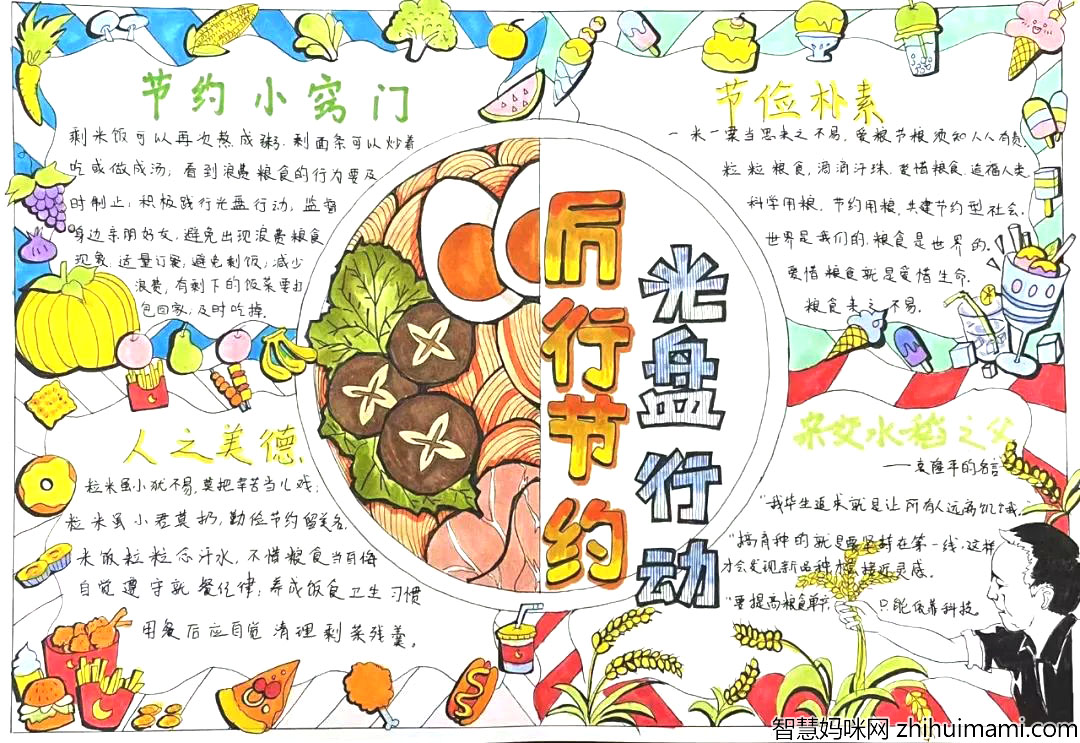 节约小窍门
剩米饭可以再次熬成粥.剩面条可以炒着
吃或做成汤；看到浪费粮食的行为要及
时制止；积极践行光盘行动，监督
身边亲朋好友，避免出现浪费粮食
现象.适量订餐，避免剩饭，减少
浪费，有剩下的饭菜要打
包回家，及时吃掉.
人之美德.
粒米虽小犹不易，莫把辛苦当儿戏；
粒米虽小君莫扔，勤俭节约留美名.
米饭粒粒念汗水，不惜粮食当自悔
自觉遵守就餐纪律；养成饭食卫生习惯
用餐后应自觉清理剩菜残羹。
厉行节约
光盘行动
节俭朴素
一米一粟当思来之不易.爱粮节粮须知人人有责.
粒粒粮食，滴滴汗珠.爱惜粮食.造福人类.
科学用粮，节约用粮.共建节约型社会.
世界是我们的，粮食是世界的.
爱惜粮食就是爱惜生命.
粮食来之不易.
杂交水稻之父
——袁隆平的名言
"我毕生追求就是让所有人远离饥饿.
"搞育种的就是要坚持在第一线，这样
才会发现新品种 接近灵感.
"要提高粮食 只能依靠科技.
智慧妈咪网 zhihuimami.com